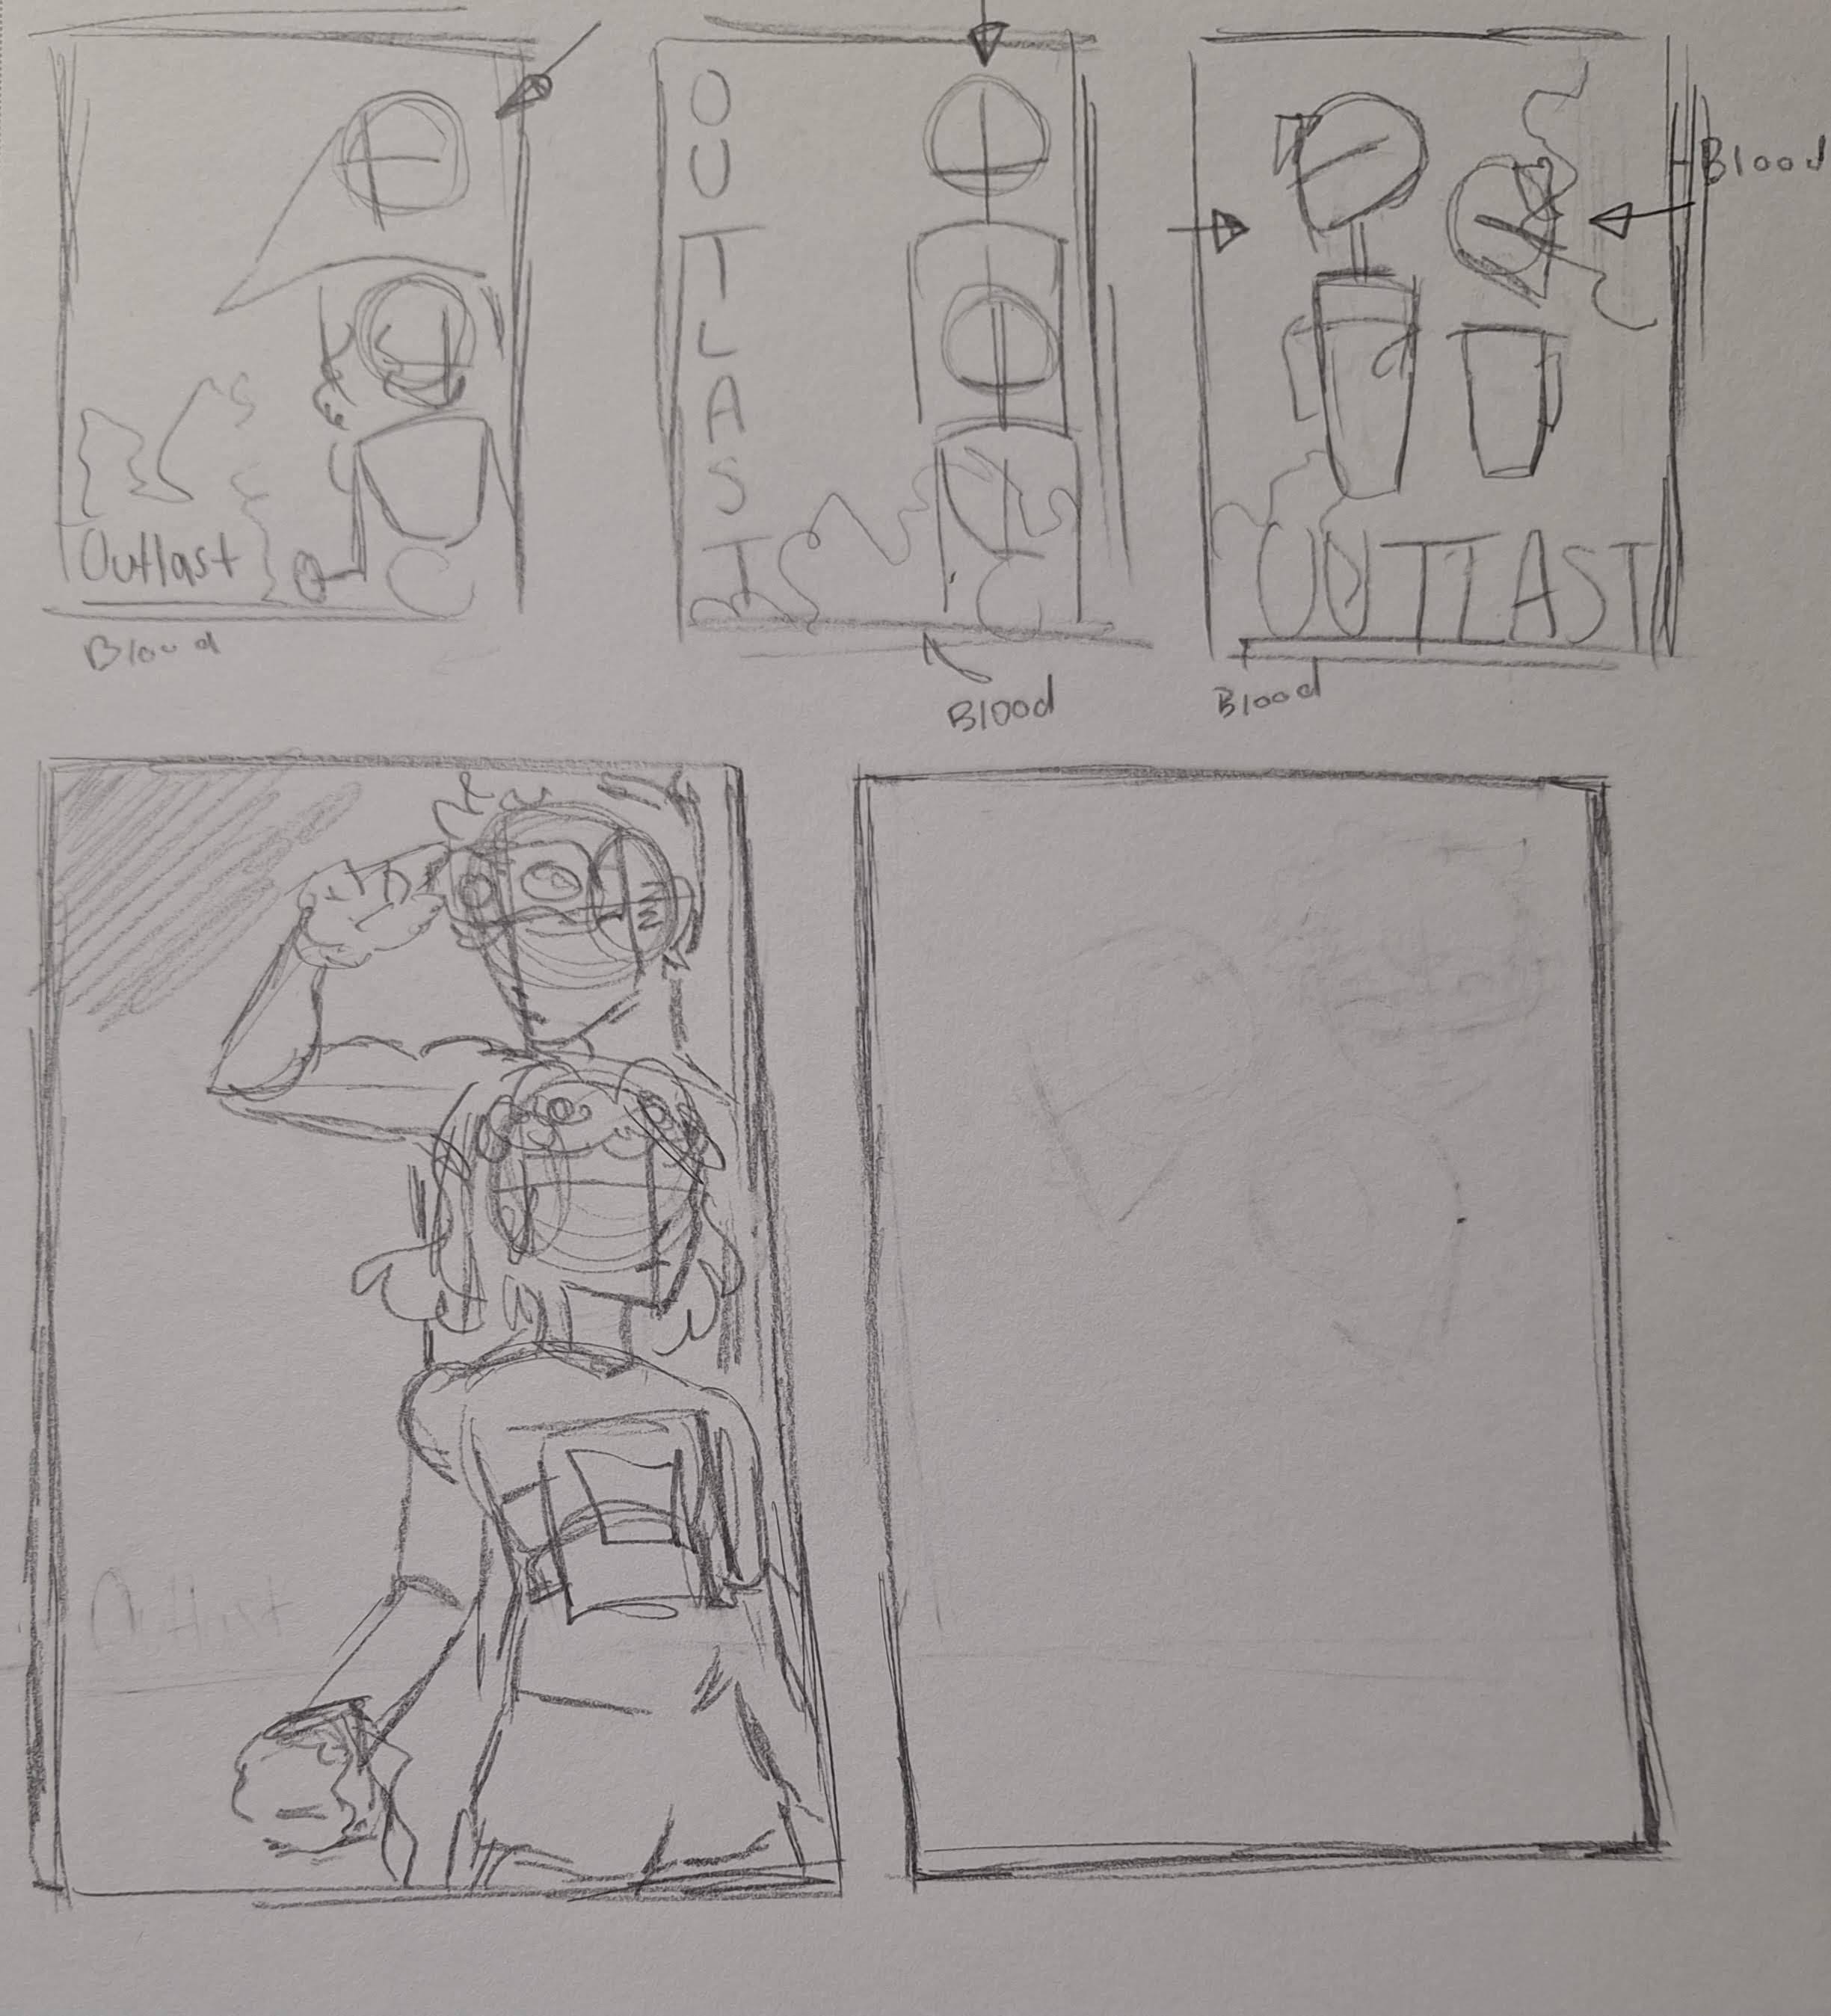 Outlast
Blood
OUTLAST
Blood
Blood
OUTLAST
Blood
Outlast